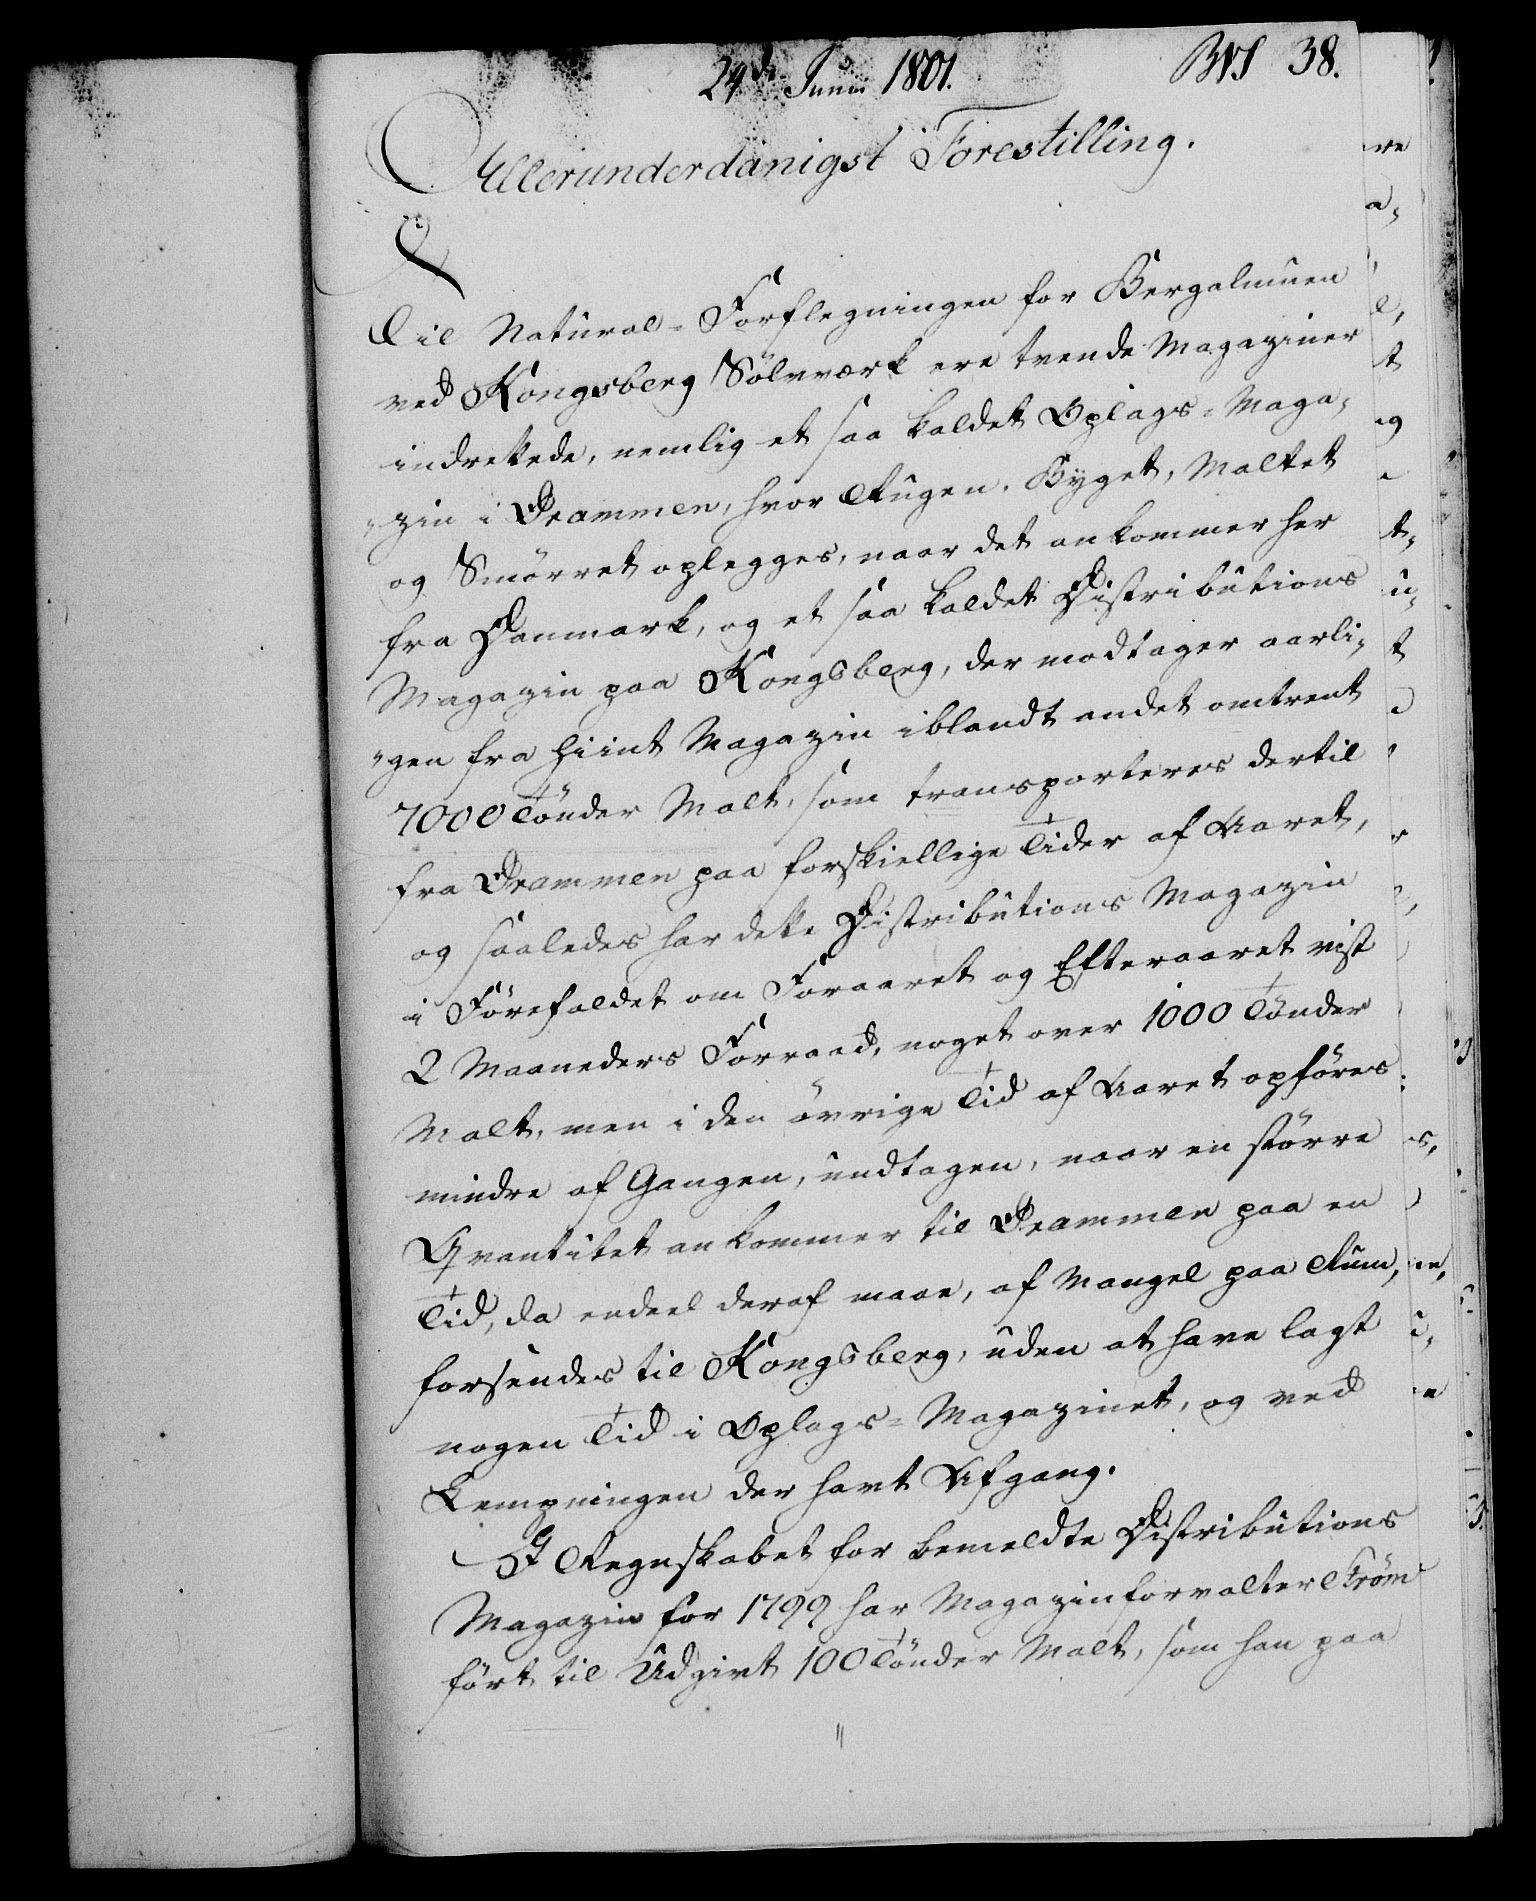 24de Junii 1801.
38.
Allerunderdanigst Forestilling.
Til Natural-Forflegningen for Bergalmuen
ved Kongsberg Sölvværk ere tvende Magaziner
indrettede, nemlig et saa kaldet Oplags-Maga-
-zin i Drammen, hvor Rugen, Byget, Maltet
og Smörret oplegges, naar det ankommer her
fra Danmark, og et saa kaldet Distributions
Magazin paa Kongsberg, der modtager aarli-
-gen fra hiint Magazin iblandt andet omtrent
7000 Tönder Malt, som transporteres dertil
fra Drammen paa forskiellige Tider af Aaret,
og saaledes har dette Distributions Magazin
i Förefaldet om Foraaret og Efteraaret vist
2 Maaneders Forraad, noget over 1000 Tönder
Malt, men i den övrige Tid af Aaret opföres
mindre af Gangen, undtagen, naar en större
Qvantitet ankommer til Drammen paa en
Tid, da endeel deraf maae, af Mangel paa Rum,
forsendes til Kongsberg, uden at have lagt
nogen Tid i Oplags-Magazinet, og ved
Lempningen der havt Afgang.
I Regnskabet for bemeldte Distributions
Magazin for 1799 har Magazinforvalter Ström
fört til Udgivt 100 Tönder Malt, som han paa